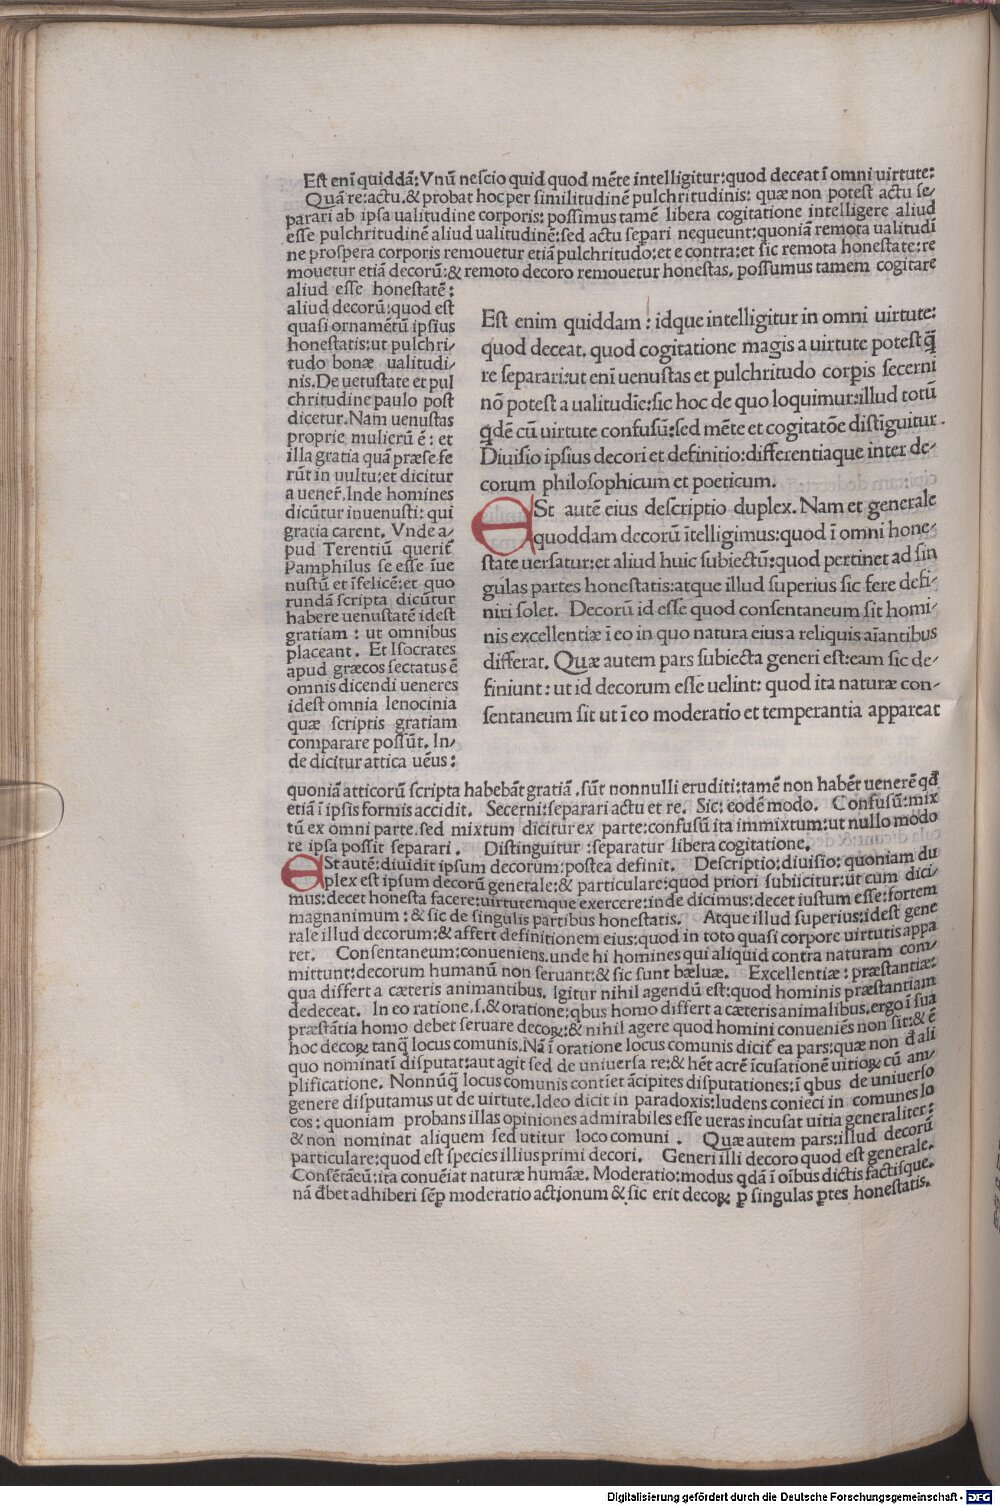 Eſt eni᷑ quiddã: Vnũ neſcio quid quod mẽte intelligitur: quod deceat ĩ omni uirtute:
Quã re: actu. & probat hoc per ſimilitudinẽ pulchritudinis: quæ non poteſt actu ſe⸗
parari ab ipſa ualitudine corporis: poſſimus tamẽ libera cogitatione intelligere aliud
eſſe pulchritudinẽ aliud ualitudinẽ: ſed actu ſepari nequeunt: quoniã remota ualitudi
ne proſpera corporis remouetur etiã pulchritudo: et e contra: et ſic remota honeſtate: re
mouetur etiã decorũ: & remoto decoro remouetur honeſtas. poſſumus tamem cogitare
aliud eſſe honeſtatẽ:
aliud decorũ: quod eſt
quaſi ornamẽtũ ipſius
honeſtatis: ut pulchri⸗
tudo bonæ ualitudi⸗
nis. De uetuſtate et pul
chritudine paulo poſt
dicetur. Nam uenuſtas
proprie mulierũ ẽ: et
illa gratia quã præſe fe
rũt in uultu: et dicitur
a uener̃. Inde homines
dicũtur inuenuſti: qui
gratia carent. Vnde a⸗
pud Terentiũ querit᷑
Pamphilus ſe eſſe ĩue
nuſtũ et ĩfelicẽ: et quo
rundã ſcripta dicũtur
habere uenuſtatẽ ideſt
gratiam: ut omnibus
placeant. Et Iſocrates
apud græcos ſectatus ẽ
omnis dicendi ueneres
ideſt omnia lenocinia
quæ ſcriptis gratiam
comparare poſſũt. In⸗
de dicitur attica uẽus:
Eſt enim quiddam: idque intelligitur in omni uirtute:
quod deceat. quod cogitatione magis a uirtute poteſt q̃
re ſeparari: ut eni᷑ uenuſtas et pulchritudo corꝑis ſecerni
nõ poteſt a ualitudĩe: ſic hoc de quo loquimur: illud totũ
qdẽ cũ uirtute confuſũ: ſed mẽte et cogitatõe diſtĩguitur.
Diuiſio ipſius decori et definitio: differentiaque inter de⸗
corum philoſophicum et poeticum.
ESt autẽ eius deſcriptio duplex. Nam et generale
quoddam decorũ ĩtelligimus: quod ĩ omni hone⸗
ſtate uerſatur: et aliud huic ſubiectũ: quod pertinet ad ſin
gulas partes honeſtatis: atque illud ſuperius ſic fere defi⸗
niri ſolet. Decorũ id eſſe quod conſentaneum ſit homi⸗
nis excellentiæ ĩ eo in quo natura eius a reliquis aĩantibus
differat. Quæ autem pars ſubiecta generi eſt: eam ſic de⸗
finiunt: ut id decorum eſſe uelint: quod ita naturæ con⸗
ſentaneum ſit ut ĩ eo moderatio et temperantia appareat
quoniã atticorũ ſcripta habebãt gratiã. ſũt nonnulli eruditi: tamẽ non habẽt uenerẽ qđ
etiã ĩ ipſis formis accidit. Secerni: ſeparari actu et re. Sic: eodẽ modo. Confuſũ: mix
tũ ex omni parte. ſed mixtum dicitur ex parte: confuſũ ita immixtum: ut nullo modo
re ipſa poſſit ſeparari. Diſtinguitur: ſeparatur libera cogitatione.
ESt autẽ: diuidit ipſum decorum: poſtea definit. Deſcriptio: diuiſio: quoniam du
plex eſt ipſum decorũ generale: & particulare: quod priori ſubiicitur: ut cum dici⸗
mus: decet honeſta facere: uirtutemque exercere: inde dicimus: decet iuſtum eſſe: fortem
magnanimum: & ſic de ſingulis partibus honeſtatis. Atque illud ſuperius: ideſt gene
rale illud decorum: & affert definitionem eius: quod in toto quaſi corpore uirtutis appa
ret. Conſentaneum: conueniens. unde hi homines qui aliquid contra naturam com⸗
mittunt: decorum humanũ non ſeruant: & ſic ſunt bæluæ. Excellentiæ: præſtantiæ:
qua differt a cæteris animantibus. Igitur nihil agendũ eſt: quod hominis præſtantiam
dedeceat. In eo ratione. ſ. & oratione: qbus homo differt a cæteris animalibus. ergo ĩ ſua
præſtãtia homo debet ſeruare decoꝝ: & nihil agere quod homini conueniẽs non ſit: & ẽ
hoc decoꝝ tanq̃ locus comunis. Nã ĩ oratione locus comunis dicit᷑ ea pars: quæ non đ ali
quo nominati᷑ diſputat: aut agit ſed de uniuerſa re: & hẽt acrẽ ĩcuſationẽ uitioꝝ cũ am⸗
plificatione. Nonnũq̃ locus comunis contiet᷑ ãcipites diſputationes: ĩ qbus de uniuerſo
genere diſputamus ut de uirtute. Ideo dicit in paradoxis: ludens conieci in comunes lo
cos: quoniam probans illas opiniones admirabiles eſſe ueras incuſat uitia generaliter:
& non nominat aliquem ſed utitur loco comuni. Quæ autem pars: illud decorũ
particulare: quod eſt ſpecies illius primi decori. Generi illi decoro quod eſt generale.
Conſẽtãeũ: ita conuẽiat naturæ humãæ. Moderatio: modus qdã ĩ oĩbus dictis factiſque.
nã đbet adhiberi ſẽꝑ moderatio actionum & ſic erit decoꝝ ꝑ ſingulas ꝑtes honeſtatis.
Digitalisierung gefördert durch die Deutsche Forschungsgemeinschaft - DFG